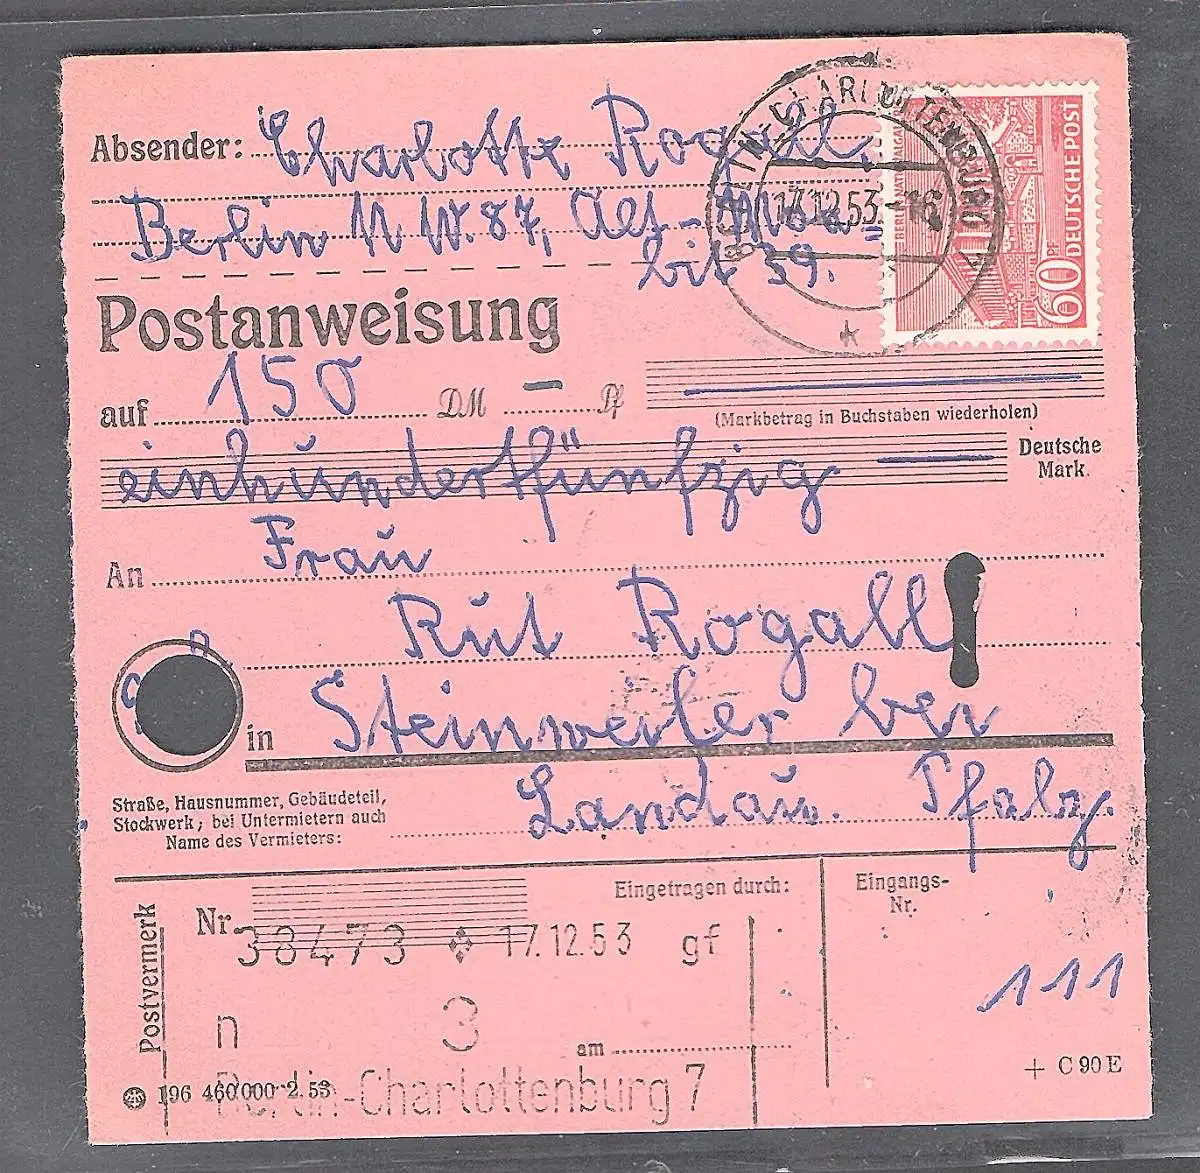 Absender: Charlotte Rogall
Berlin NW.87, Alt-Moa=
bit 39.
BERLIN-CHARLOTTENBURG 7
17.12.53.-16
DEUTSCHE POST
60 PF
Postanweisung
auf 150 DM — Pf
(Markbetrag in Buchstaben wiederholen)
einhundertfünfzig
Deutsche
Mark.
Frau
An
Rut Rogall
in Steinweiler bei
Landau. Pfalz.
Straße, Hausnummer, Gebäudeteil,
Stockwerk; bei Untermietern auch
Name des Vermieters:
Postvermerk
Nr.
Eingetragen durch:
Eingangs-
Nr.
38473 17.12.53 gf
111
n 3
am
Berlin-Charlottenburg 7
196 460000 2.53
+ C 90 E